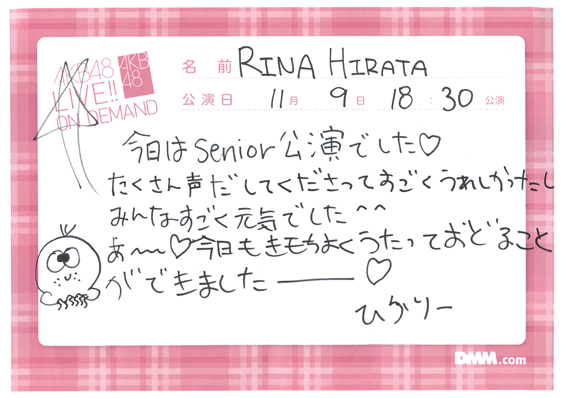 AKB48
LIVE!!
ON DEMAND
AKB
48
名前 RINA HIRATA
公演日 11月 9日 18:30公演
今日はsenior公演でした♡
たくさん声だしてくださってすごくうれしかったし
みんなすごく元気でした^^
あ〜〜♡今日もきもちよくうたっておどること
ができました――♡
ひらりー
DMM.com